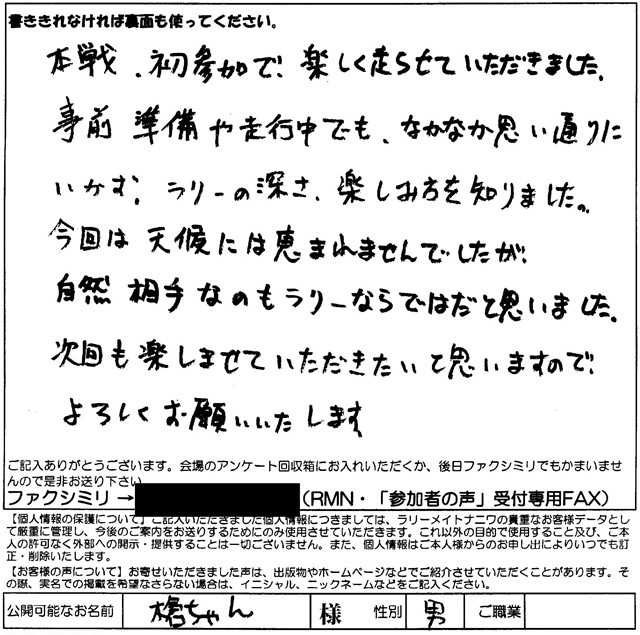 書ききれなければ裏面も使ってください。
本戦、初参加で、楽しく走らせていただきました。
事前準備や走行中でも、なかなか思い通りに
いかず、ラリーの深さ、楽しみ方を知りました。
今回は天候には恵まれませんでしたが、
自然相手なのもラリーならではだと思いました。
次回も楽しませていただきたいと思いますので、
よろしくお願いいたします
ご記入ありがとうございます。会場のアンケート回収箱にお入れいただくか、後日ファクシミリでもかまいませ
んので是非お送り下さい
ファクシミリ→ (RMN・「参加者の声」受付専用FAX)
【個人情報の保護について】ご記入いただきました個人情報につきましては、ラリーメイトナニワの貴重なお客様データとし
て厳重に管理し、今後のご案内をお送りするためにのみ使用させていただきます。これ以外の目的で使用すること及び、ご本
人の許可なく外部への開示・提供することは一切ございません。また、個人情報はご本人様からのお申し出によりいつでも訂
正・削除いたします。
【お客様の声について】お寄せいただきました声は、出版物やホームページなどでご紹介させていただくことがあります。そ
の際、実名での掲載を希望なさらない場合は、イニシャル、ニックネームなどをご記入ください。
公開可能なお名前 槍ちゃん 様 性別 男 ご職業